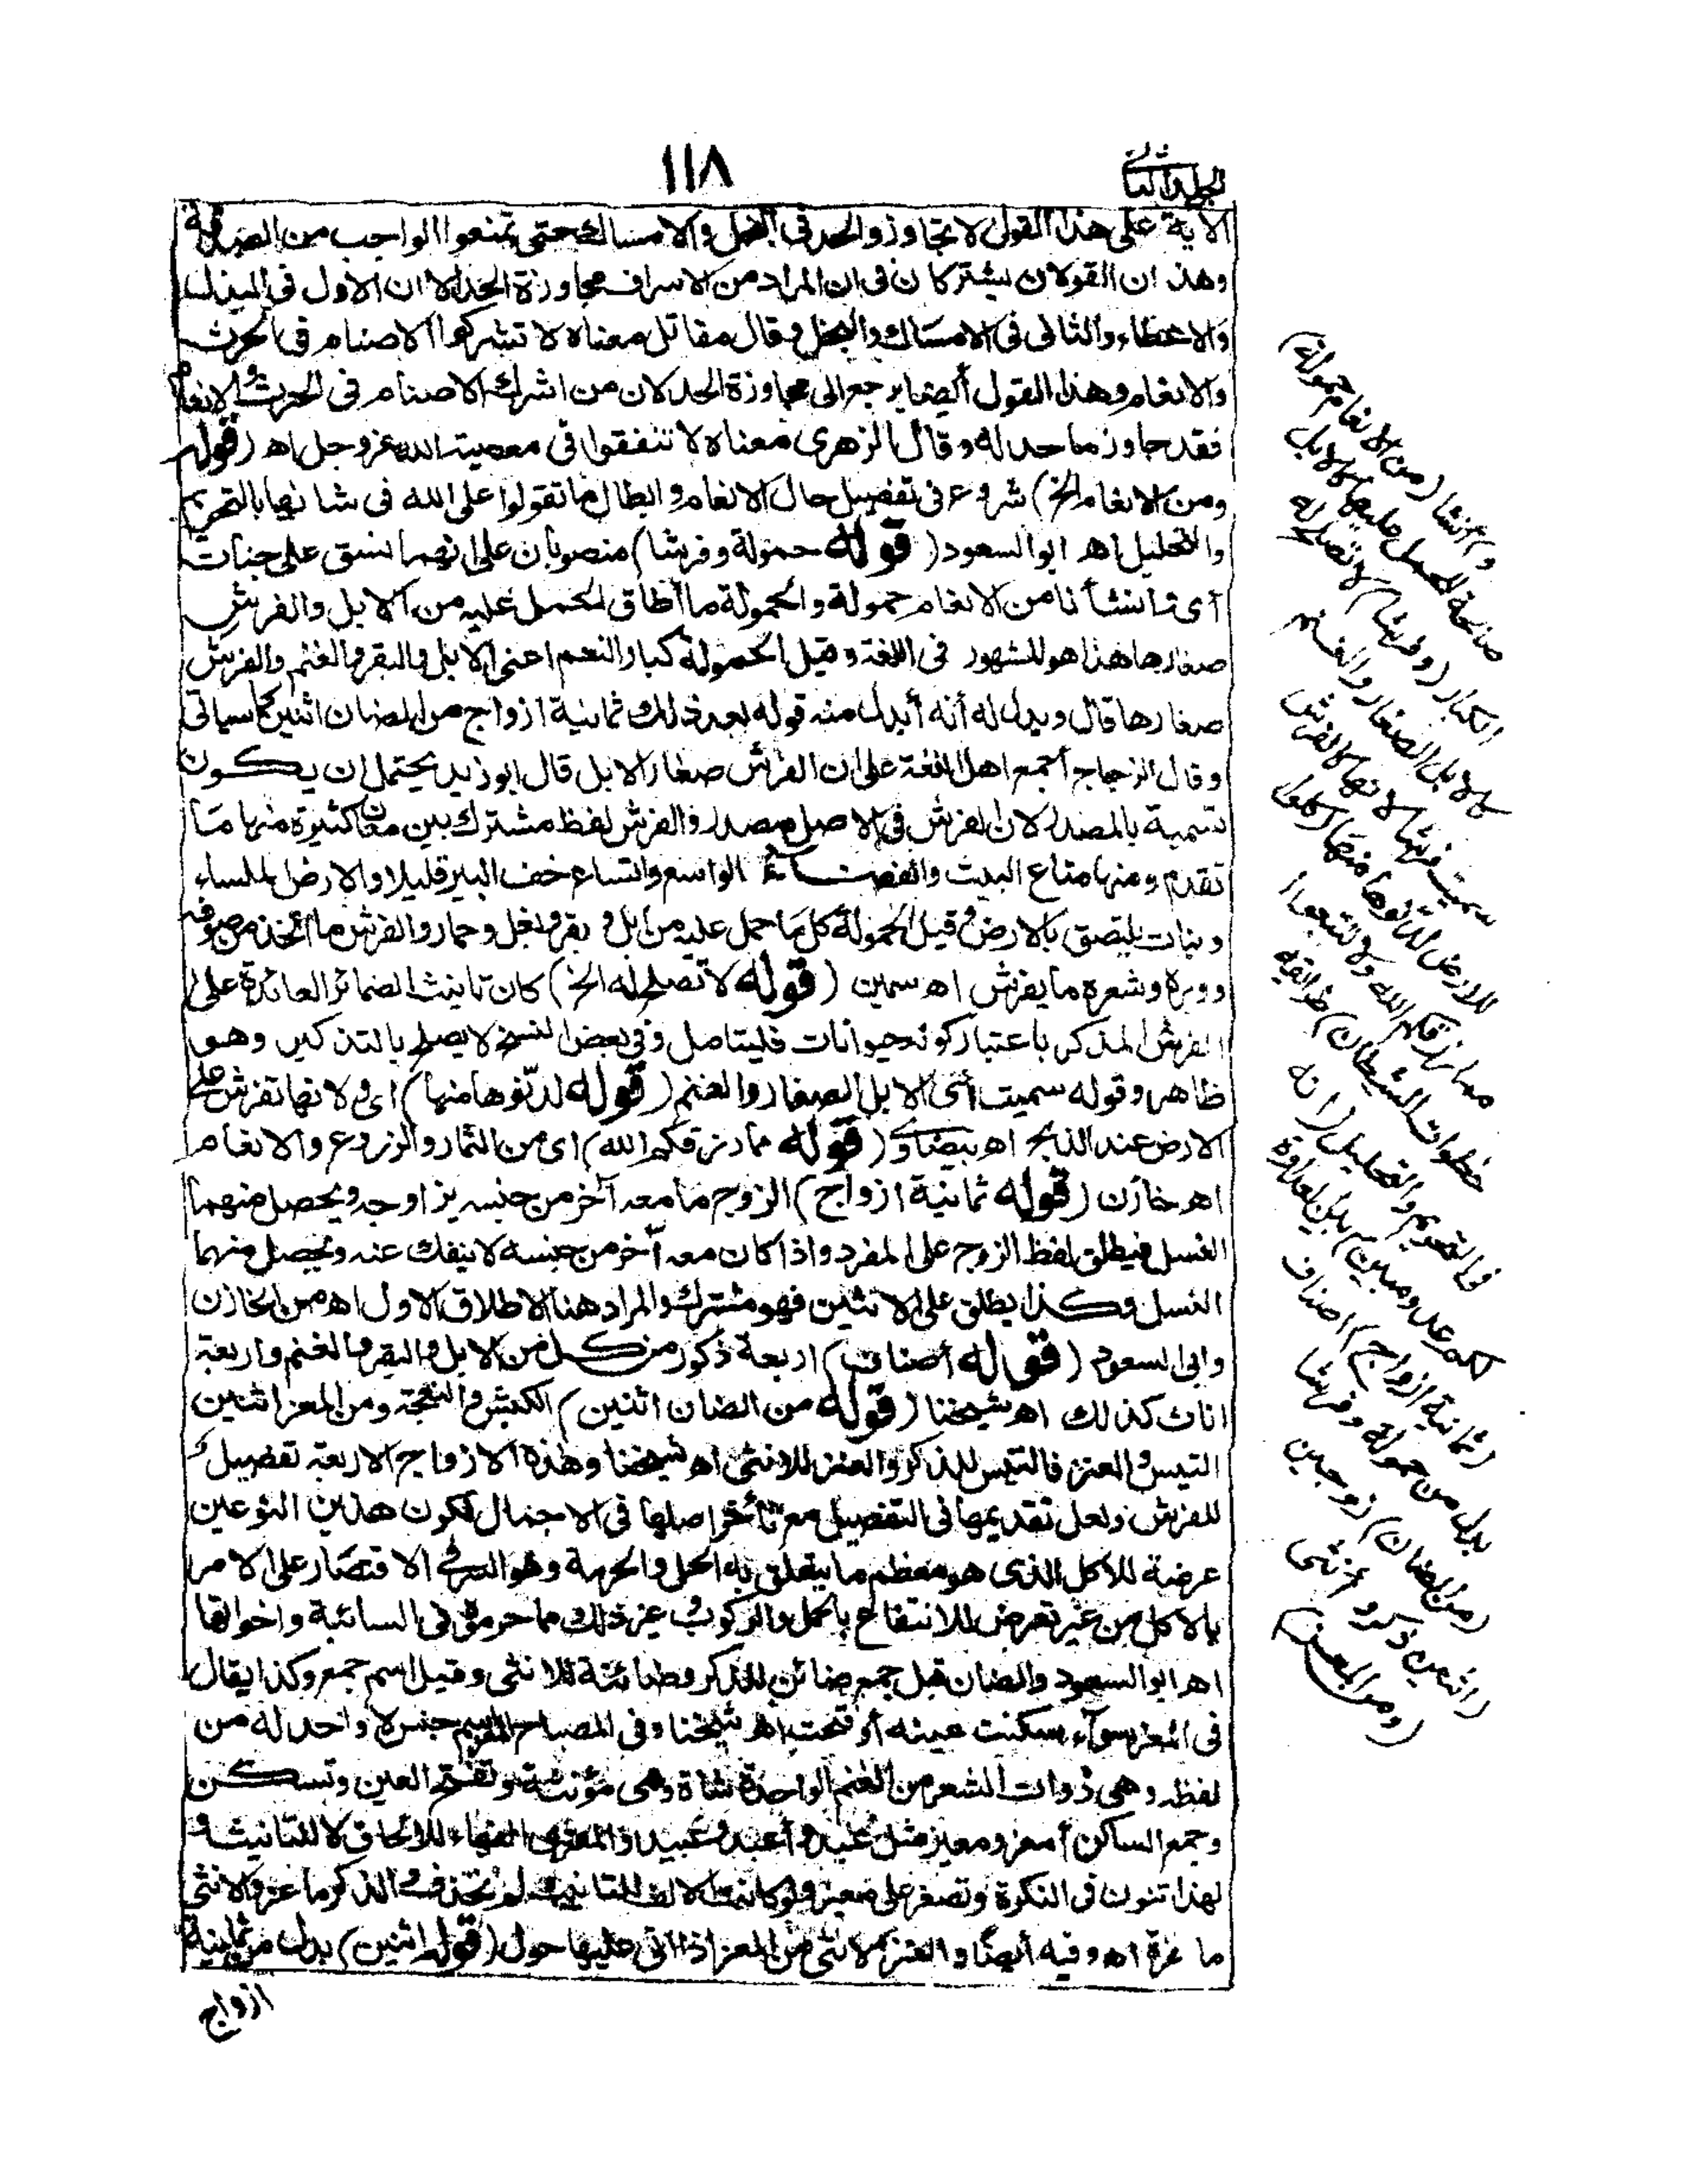 الجلد الثاني
١١٨
الآية على هذا القول لا تجاوزوا الحد في البخل والامساك حتى تمنعوا الواجب من الصدقة
وهذان القولان يشتركان في ان المراد من الاسراف مجاوزة الحد الا ان الاول في البذل
والاعطاء والثاني في الامساك والبخل وقال مقاتل معناه لا تشركوا الاصنام في الحرث
والانعام وهذا القول أيضا يرجع الى مجاوزة الحد لان من اشرك الاصنام في الحرث والانعام
فقد جاوز ما حد له وقال الزهري معناه لا تنفقوا في معصية الله عز وجل اه (قوله
ومن الانعام الخ) شروع في تفصيل حال الانعام وابطال ما تقولوا على الله في شانها بالتحريم
والتحليل اه ابو السعود (قوله حمولة وفرشا) منصوبان على انهما نسق على جنات
أي وانشأنا من الانعام حمولة والحمولة ما أطاق الحمل عليه من الابل والفرش
صغارها هذا هو المشهور في اللغة وقيل الحمولة كبار النعم اعني الابل والبقر والغنم والفرش
صغارها قال ويدل له أنه أبدل منه قوله بعد ذلك ثمانية ازواج من الضان اثنين كما سياتي
وقال الزجاج أجمع اهل اللغة على ان الفرش صغار الابل قال ابو زيد يحتمل ان يكون
تسمية بالمصدر لان الفرش في الاصل مصدر والفرش لفظ مشترك بين معان كثيرة منها ما
تقدم ومنها متاع البيت والفضاء الواسع واتساع خف البعير قليلا والارض الملساء
ونبات يلتصق بالارض وقيل الحمولة كل ما حمل عليه من ابل وبقر وبغل وحمار والفرش ما اتخذ من صوفه
ووبره وشعره ما يفرش اه سمين (قوله لا تصلح له الخ) كان تانيث الضمائر العائدة على
الفرش المذكر باعتبار كونه حيوانات فليتامل وفي بعض النسخ لا يصلح بالتذكير وهو
ظاهر وقوله سميت أي الابل الصغار والغنم (قوله لدنوها منها) اي ولانها تفرش على
الارض عند الذبح اه بيضاوي (قوله مما رزقكم الله) اي من الثمار والزروع والانعام
اه خازن (قوله ثمانية ازواج) الزوج ما معه آخر من جنسه يزاوجه ويحصل منهما
النسل فيطلق لفظ الزوج على المفرد اذا كان معه آخر من جنسه لا ينفك عنه ويحصل منهما
النسل وكذا يطلق على الاثنين فهو مشترك والمراد هنا الاطلاق الاول اه من الخازن
وابي السعود (قوله أصناف) اربعة ذكور من كل من الابل والبقر والغنم واربعة
اناث كذلك اه شيخنا (قوله من الضان اثنين) الكبش والنعجة ومن المعز اثنين
التيس والعنز فالتيس للذكر والعنز للانثى اه شيخنا وهذه الازواج الاربعة تفصيل
للفرش ولعل تقديمها في التفصيل مع تأخر اصلها في الاجمال لكون هذين النوعين
عرضة للاكل الذي هو معظم ما يتعلق به الحل والحرمة وهو السر في الاقتصار على الامر
بالاكل من غير تعرض للانتفاع بالحمل والركوب وغير ذلك مما حرموه في السائبة واخواتها
اه ابو السعود والضان قيل جمع ضائن للذكر وضائنة للانثى وقيل اسم جمع وكذا يقال
في المعز سواء سكنت عينه أو فتحت اه شيخنا وفي المصباح المعز اسم جنس لا واحد له من
لفظه وهي ذوات الشعر من الغنم الواحدة شاة وهي مؤنثة وتفتح العين وتسكن
وجمع الساكن أمعز ومعيز مثل عبد وأعبد وعبيد والمعزى الفها للالحاق لا للتانيث و
لهذا تنون في النكرة وتصغر على معيز ولو كانت الالف للتانيث لم تحذف والذكر ماعز والانثى
ماعزة اه وفيه أيضا والعنز الانثى من المعز اذا اتى عليها حول (قوله اثنين) بدل من ثمانية
ازواج
و) انشا (من الانعام حمولة)
صالحة للحمل عليها كالابل
الكبار (وفرشا) لا تصلح له
كالابل الصغار والغنم
سميت فرشا لانها كالفرش
للارض لدنوها منها (كلوا
مما رزقكم الله ولا تتبعوا
خطوات الشيطان) طرائقه
في التحريم والتحليل (انه
لكم عدو مبين) بين العداوة
(ثمانية ازواج) اصناف
بدل من حمولة وفرشا
(من الضان) زوجين
(اثنين) ذكر وانثى
(ومن المعز